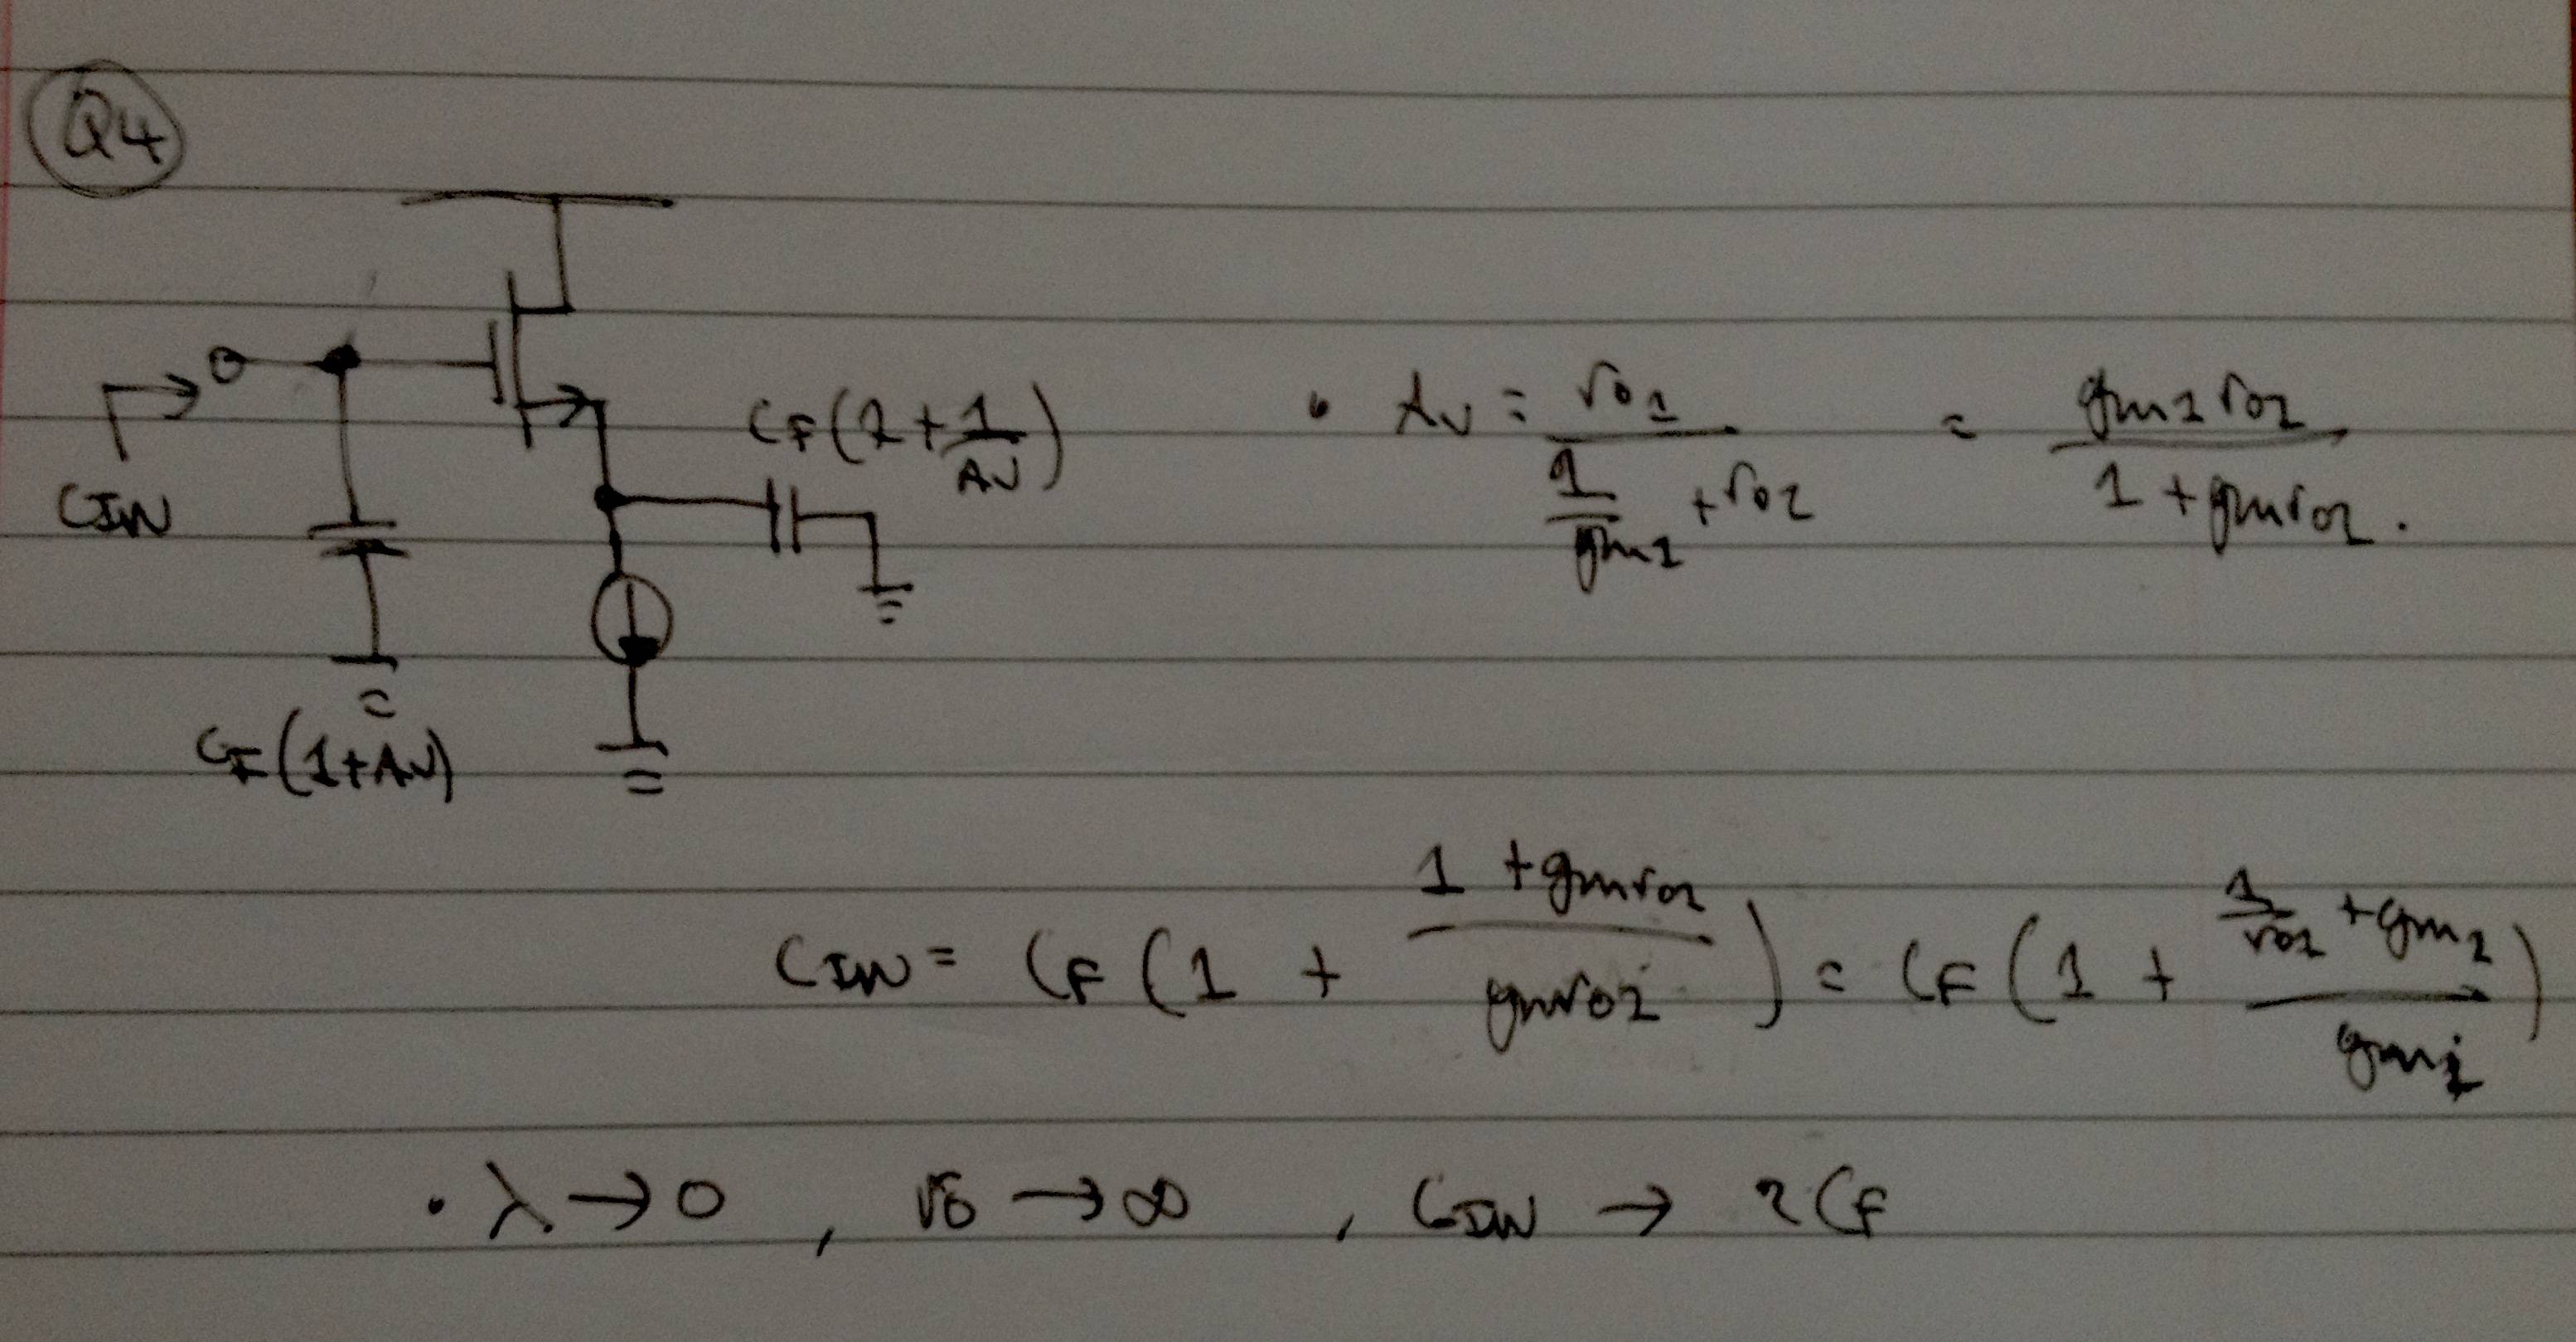 Q4
CF(1 + 1/AV)
CIN
CF(1+AV)
• AV = ro1 / (1/gm1 + ro2) = gm1ro2 / (1 + gmro2).
CIN = CF(1 + (1 + gmro2)/(gmro2)) = CF(1 + (1/ro2 + gm1)/gm1)
• λ → 0 , ro → ∞ , CIN → 2CF